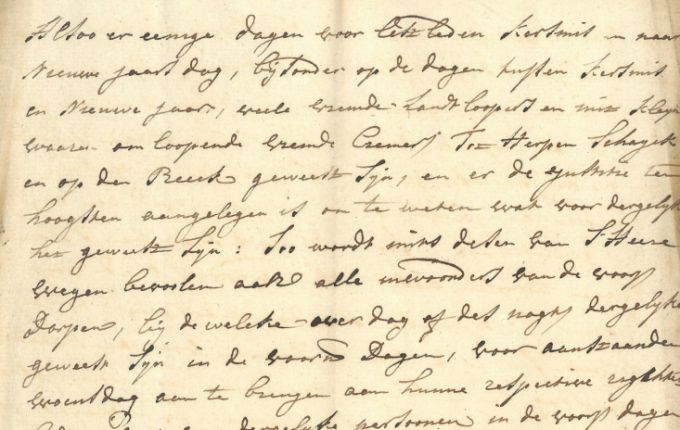 Alsoo er eenige dagen voor letstleden Kersmit en naar
Nieuwe jaars dag, bijsonder op de dagen tussen Kersmit
en Nieuwe jaar, veele vremde Landtloopers en met kleyn
waaren omloopende vremde Cremers Tot Herpen Schayck
en op den Reeck geweest sijn, en er de justitie ten
hoogsten aangelegen is om te weten wat voor dergelyke
het geweest sijn: Soo wordt mits desen van S'Heere
wegen bevoolen aan alle inwoonders van de voors
Dorpen, bij de welcke over dag of des nagts dergelyke
geweest sijn in de voorn Dagen, voor aanstaanden
woensdag aan te brengen aan hunne respective
dergelyke persoonen in de voors dagen